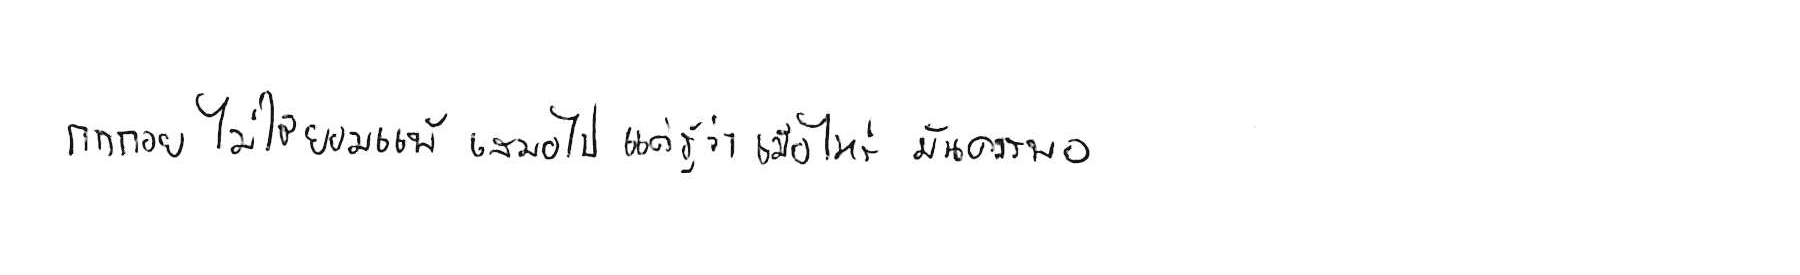 ถดถอย ไม่ใช่ยอมแพ้ เสมอไป แค่รู้ว่า เมื่อไหร่ มันควรพอ